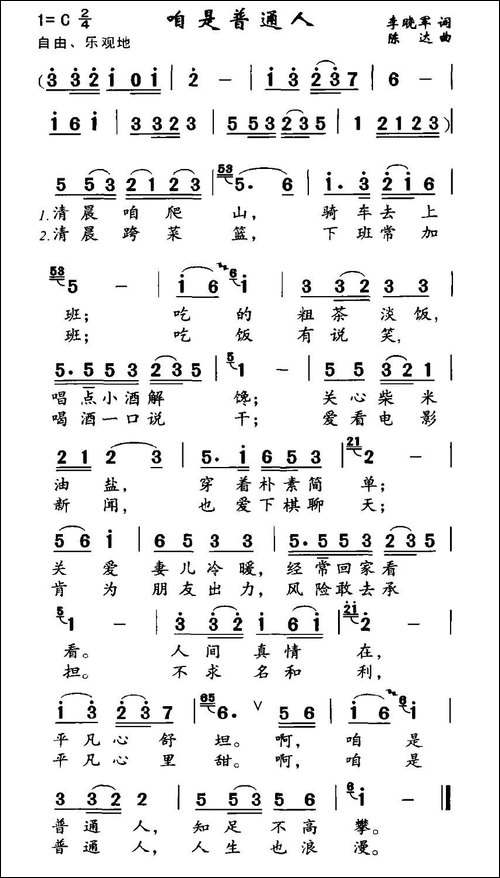 咱是普通人
1=C 2/4
李晓军 词
自由、乐观地
陈达 曲
(3 3 2 1 0 1 | 2 - | 1 3 | 1 3 2 3 7 | 6 - |
1 6 1 | 3 3 2 3 | 5 5 3 2 3 5 | 1 2 1 2 3)
5 5 3 2 1 2 3 | 53 5. 6 | 1. 3 2 1 6 |
1.清晨咱爬山，骑车去上
2.清晨跨菜篮，下班常加
53 5 - | 1 6 6 1 | 3 3 2 3 3 |
班；吃的粗茶淡饭，
班；吃饭有说笑，
5. 5 5 3 2 3 5 | 5 1 - | 5 5 3 2 1 |
唱点小酒解馋；关心柴米
喝酒一口说干；爱看电影
2 1 2 3 | 5. 1 6 5 3 | 21 2 - |
油盐，穿着朴素简单；
新闻，也爱下棋聊天；
5 6 1 | 6 5 3 3 | 5. 5 5 3 2 3 5 |
关爱妻儿冷暖，经常回家看
肯为朋友出力，风险敢去承
5 1 - | 3 3 2 1 6 1 | 21 2 - |
看。人间真情在，
担。不求名和利，
1 3 2 3 7 | 65 6. ∨ 5 6 | 1 6 6 1 |
平凡心舒坦。啊，咱是
平凡心里甜。啊，咱是
3 3 2 2 - | 5 5 3 5 6 | 6 1 - ‖
普通人，知足不高攀。
普通人，人生也浪漫。